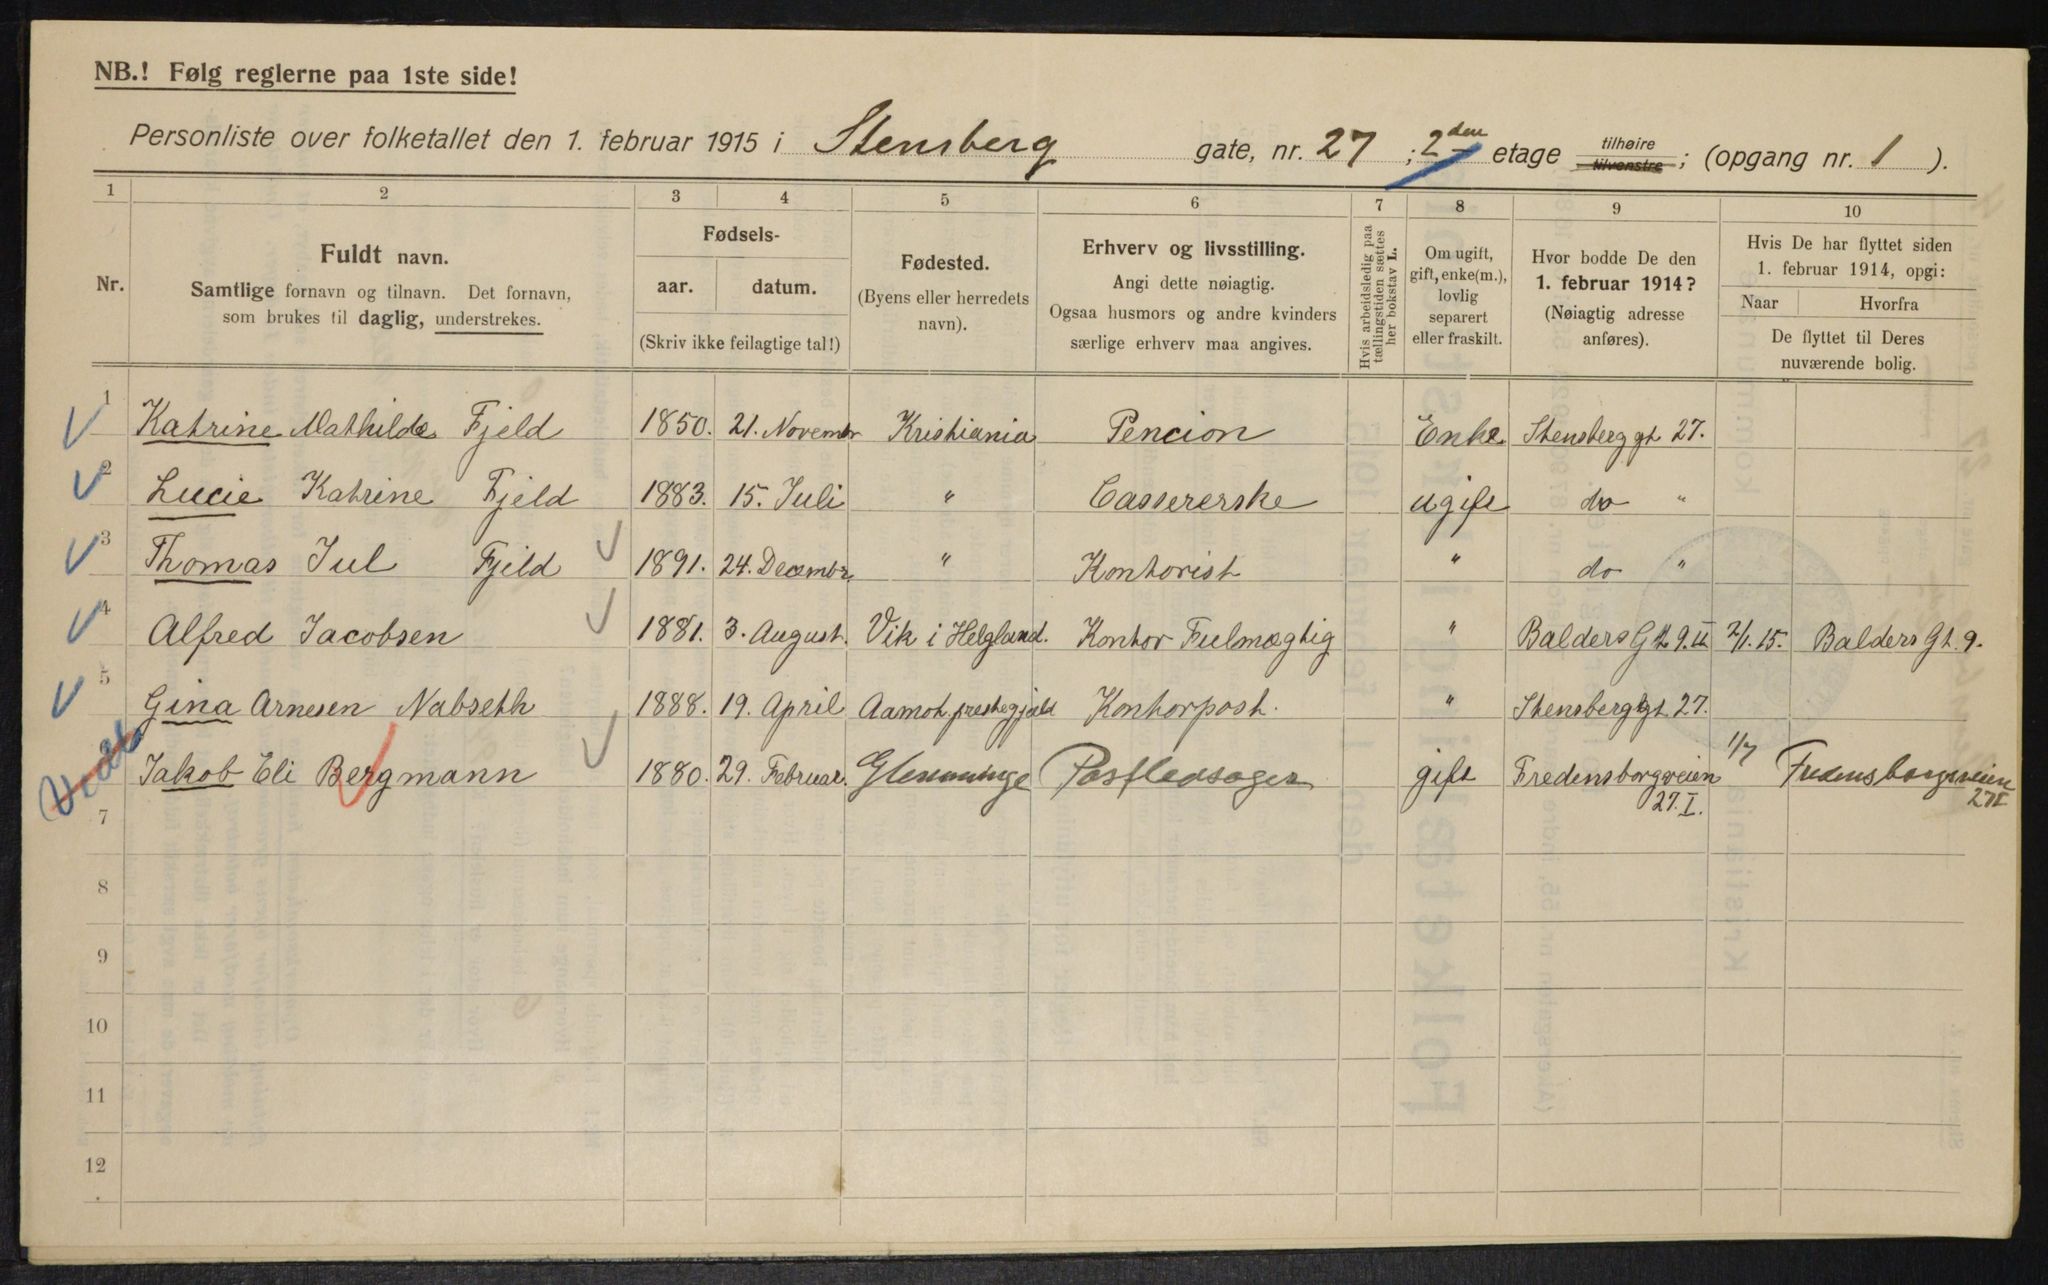 NB.! Følg reglerne paa 1ste side!
Personliste over folketallet den 1. februar 1915 i Stensberg gate, nr. 27 ; 2den etage tilhøire tilvenstre ; (opgang nr. 1 ).
1 2 3 4 5 6 7 8 9 10
Nr.
Fuldt navn.
Samtlige fornavn og tilnavn. Det fornavn,
som brukes til daglig, understrekes.
Fødsels-
aar. datum.
(Skriv ikke feilagtige tal!)
Fødested.
(Byens eller herredets
navn).
Erhverv og livsstilling.
Angi dette nøiagtig.
Ogsaa husmors og andre kvinders
særlige erhverv maa angives.
Hvis arbeidsledig paa
tællingstiden sættes
her bokstav L.
Om ugift,
gift, enke(m.),
lovlig
separert
eller fraskilt.
Hvor bodde De den
1. februar 1914?
(Nøiagtig adresse
anføres).
Hvis De har flyttet siden
1. februar 1914, opgi:
Naar Hvorfra
De flyttet til Deres
nuværende bolig.
1 Katrine Mathilde Fjeld 1850. 21. Novembr Kristiania Pencion Enke Stensberg gt 27.
2 Lucie Katrine Fjeld 1883. 15. Juli " Cassererske ugift do "
3 Thomas Jul Fjeld 1891. 24. Decembr. " Kontorist " do "
4 Alfred Jacobsen 1881. 3. August. Vik i Helgland. Kontor Fulmægtig " Balders Gt. 9. II 2/1. 15. Balders Gt. 9.
5 Gina Arnesen Nabseth 1888. 19. April Aamot prestegjæld Kontorpost. " Stensberggt 27.
6 Jakob Eli Bergmann 1880. 29. Februar. Glemminge Postledsager gift Fredensborgveien 1/7 Fredensborgveien
27. I. 27 I
7
8
9
10
11
12